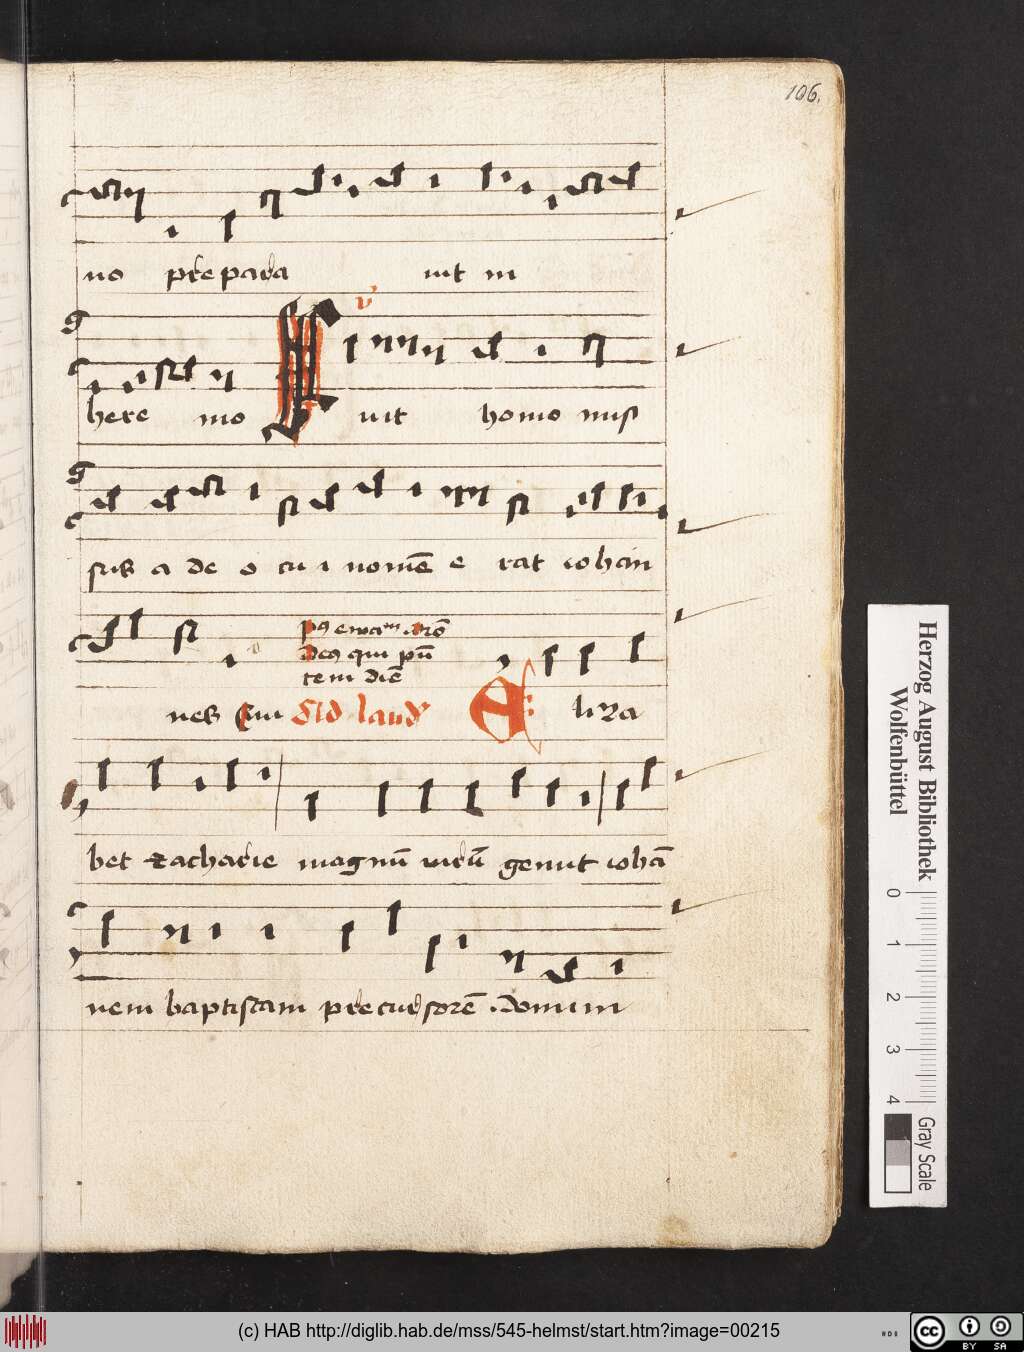 106.
no prepara uit in
v
here mo Fuit homo mis
sus a deo cui nomē e rat iohan
deus qui
tem diē
nes Qui Ad laud' Elyza
bet zacharie magnū virū genuit iohā
nem baptistam precursorē domini
Herzog August Bibliothek
Wolfenbüttel
0 1 2 3 4
Gray Scale
(c) HAB http://diglib.hab.de/mss/545-helmst/start.htm?image=00215
cc BY SA